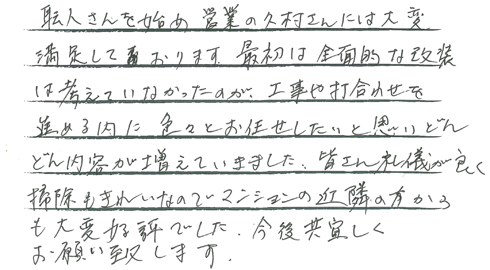 職人さんを始め 営業の久村さんには大変
満足しております。最初は全面的な改装
は考えていなかったのが、工事や打合わせを
進める内に色々とお任せしたいと思いどん
どん内容が増えていきました。皆さん礼儀が良く
掃除もきれいなのでマンションの近隣の方から
も大変好評でした。今後共宜しく
お願い致します。